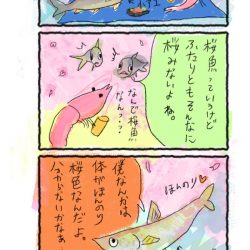 桜魚っていうけど
ふたりともそんなに
桜みないよね。
なんで桜魚
なんっ？？
僕なんかは
体がほんのり
桜色なんだよ。
わからないかなぁ
ほんのり